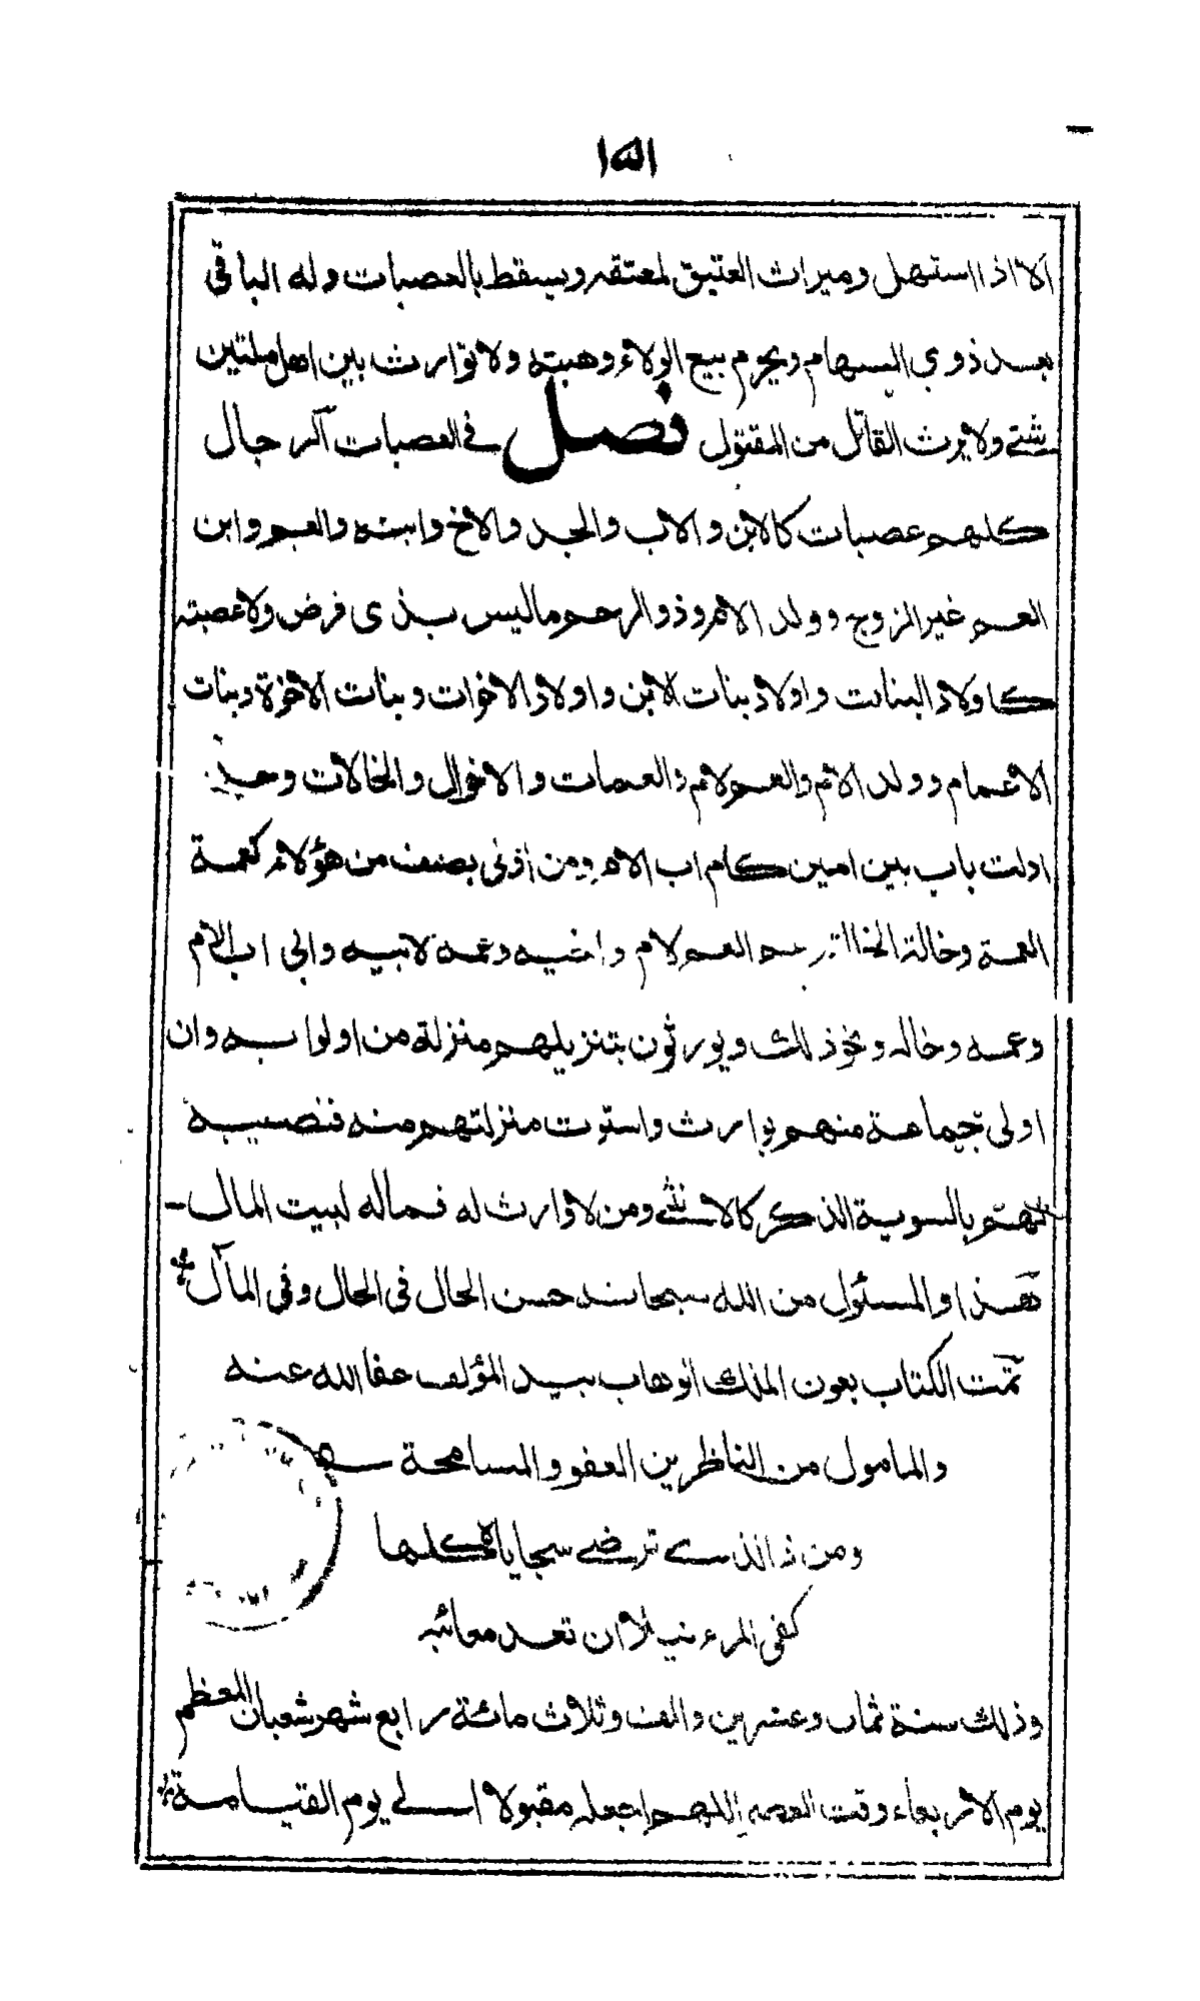 ١٥١
الا اذا استهل وميراث العتيق لمعتقه ويسقط بالعصبات وله الباقي
بعد ذوي السهام ويحرم بيع الولاء وهبته ولا توارث بين اهل ملتين
شتى ولا يرث القاتل من المقتول فصل في العصبات الرجال
كلهم عصبات كالابن والاب والجد والاخ وابنه والعم وابن
العم غير الزوج وولد الام وذو الرحم ما ليس بذى فرض ولا عصبته
كاولاد البنات واولاد بنات الابن واولاد الاخوات وبنات الاخوة وبنات
الاعمام وولد الام والعم لام والعمات والاخوال والخالات وجد
ادلت باب بين امين كام اب الام ومن ادلى بصنف من هؤلاء كعمة
العمة وخالة الخالة العم لام واخيه وعمه لابيه وابى اب الام
وعمه وخاله ونحو ذلك ويورثون بتنزيلهم منزلة من اولوا به وان
اولى جماعة منهم بوارث واستوت منزلتهم منه فنصيبه
لهم بالسوية الذكر كالانثى ومن لا وارث له فماله لبيت المال
هذا والمسئول من الله سبحانه حسن الحال فى الحال وفى المآل
تمت الكتاب بعون الملك الوهاب بيد المؤلف عفا الله عنه
والمامول من الناظرين العفو والمسامحة
ومن ذا الذي ترضى سجاياه كلها
كفى المرء نبلا ان تعد معائبه
وذلك سنة ثمان وعشرين والف وثلاث مائة رابع شهر شعبان المعظم
يوم الاربعاء وقت العصر اللهم اجعله مقبولا الى يوم القيامة